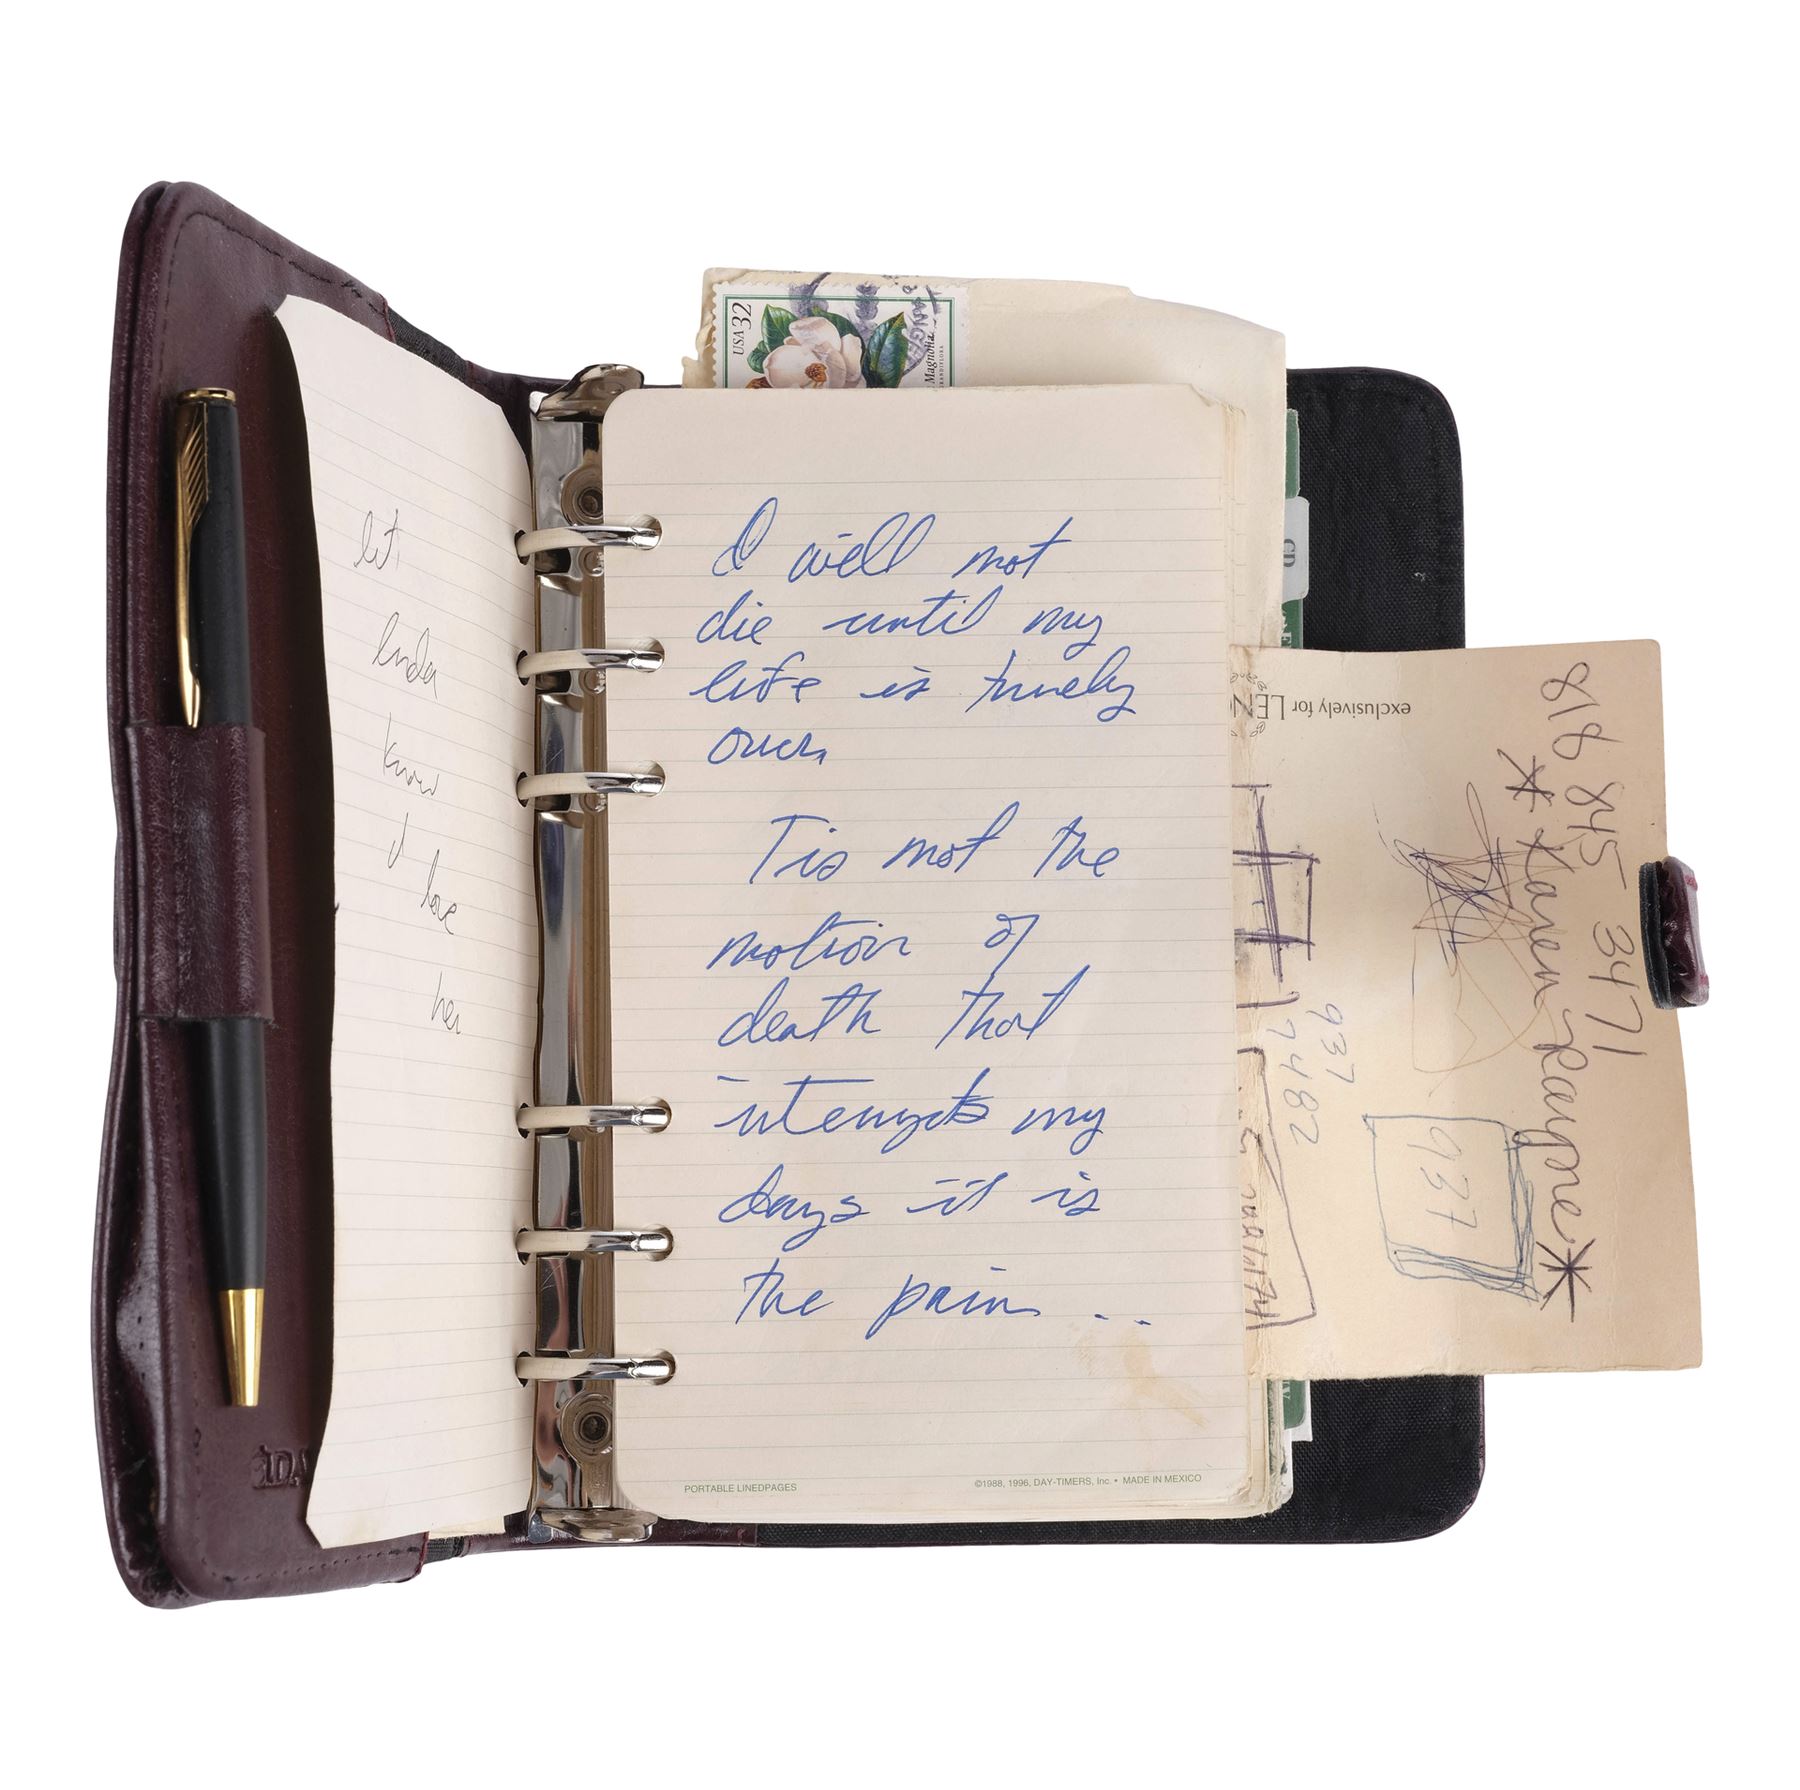 let
linda
know
I love
her
USA 32
Magnolia
I will not
die until my
life is truely
over
Tis not the
motion of
death that
interupts my
days it is
the pain ...
PORTABLE LINEDPAGES
©1988, 1996, DAY-TIMERS, Inc. • MADE IN MEXICO
CD
exclusively for LEN
818 845 3471
*Karen
937
7482
937